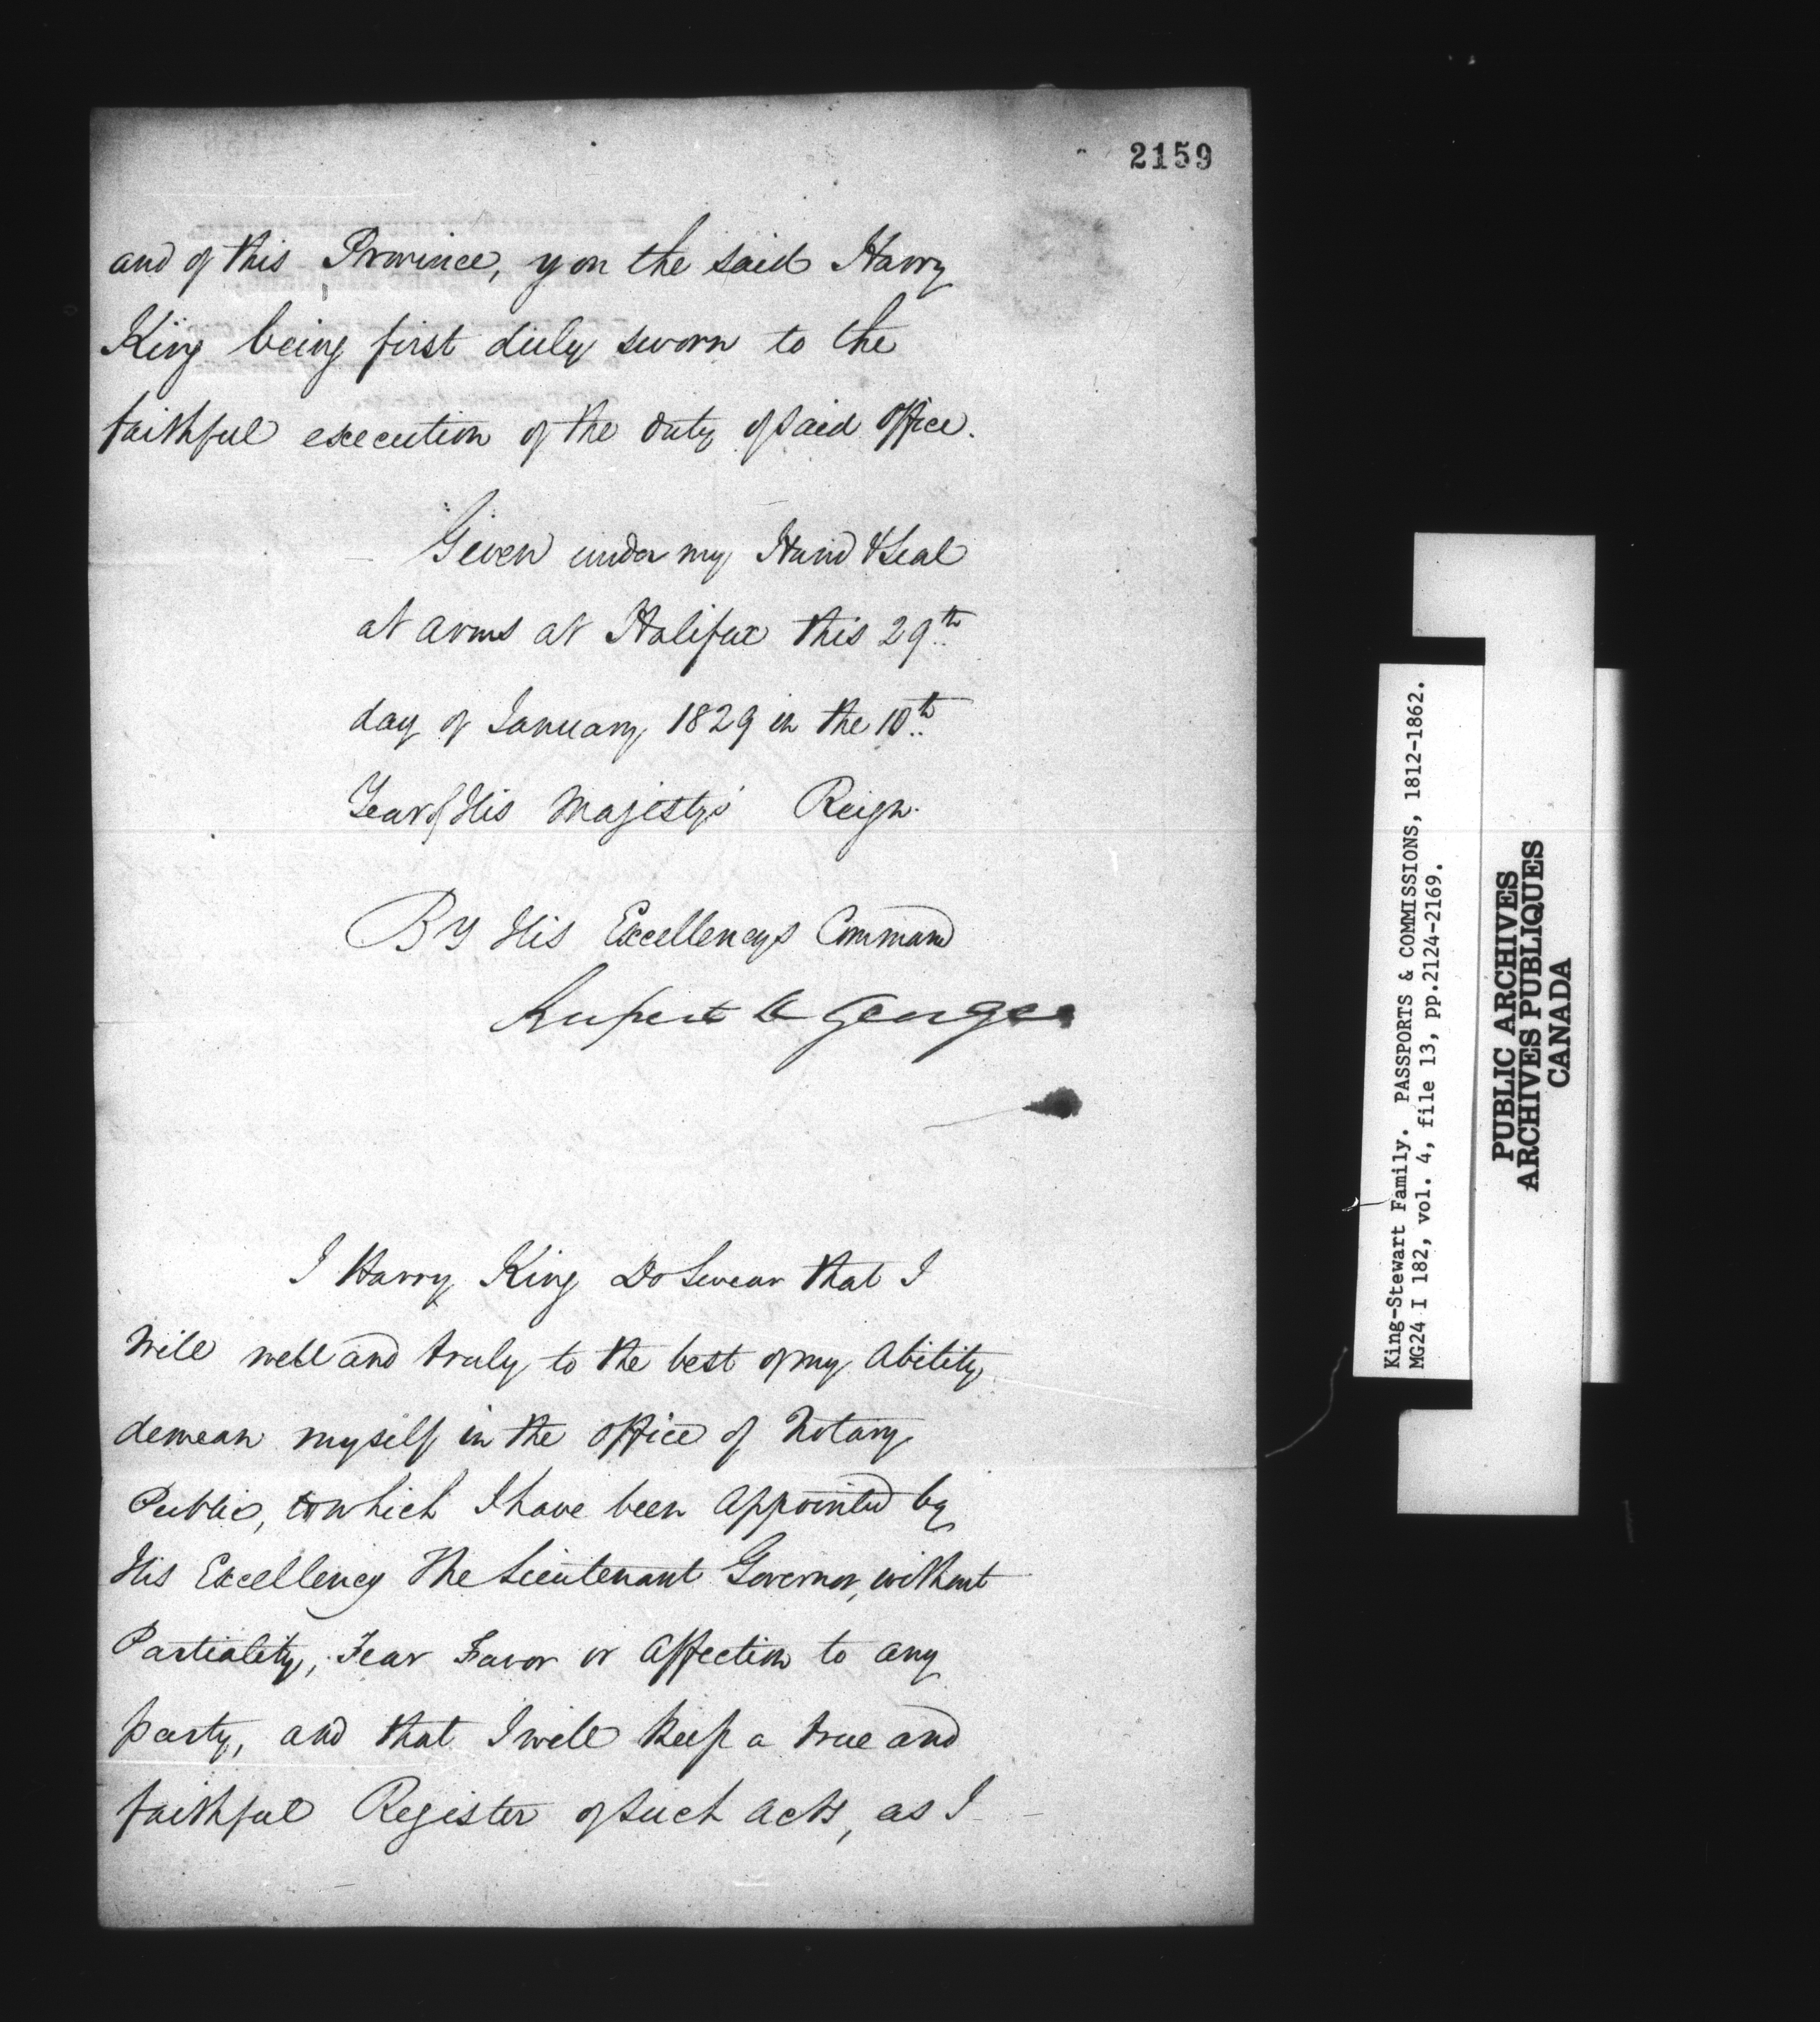 2159
and of this Province, you the said Harry
King being first duly sworn to the
faithful execution of the duty of said Office.
Given under my Hand & Seal
at Arms at Halifax this 29th
day of January 1829 in the 10th
Year of His Majestys' Reign.
By His Excellencys Command
Rupert D George
I Harry King Do Swear that I
Will well and truly to the best of my Ability
demean myself in the Office of Notary
Public, to which I have been Appointed by
His Excellency The Lieutenant Governor, without
Partiality, Fear Favor or Affection to any
party, and that I will keep a true and
faithful Register of such acts, as I
King-Stewart Family. PASSPORTS & COMMISSIONS, 1812-1862.
MG24 I 182, vol. 4, file 13, pp.2124-2169.
PUBLIC ARCHIVES
ARCHIVES PUBLIQUES
CANADA